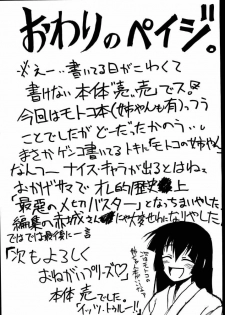 おわりのペイジ。
※えー…書いてる日がこわくて
書けない本体 売でス。
今回はモトコ本(姉ちゃんも有)っつう
ことでしたがどーだったかのう…
まさかゲンコ書いてるトキに「モトコの姉ちゃん」
なんつーナイス・キャラが出るとはね
おかげサマでオレ的歴史上
「最悪のメセカバスター」となっちまいやした。
編集の赤城さんにゃ大変也になりやした。
ではでは最後に一言
「次もよろしく
おねがいプリーズ♡」
本体 売でした。
(イッツ・トゥルー!!)
次はモトコの